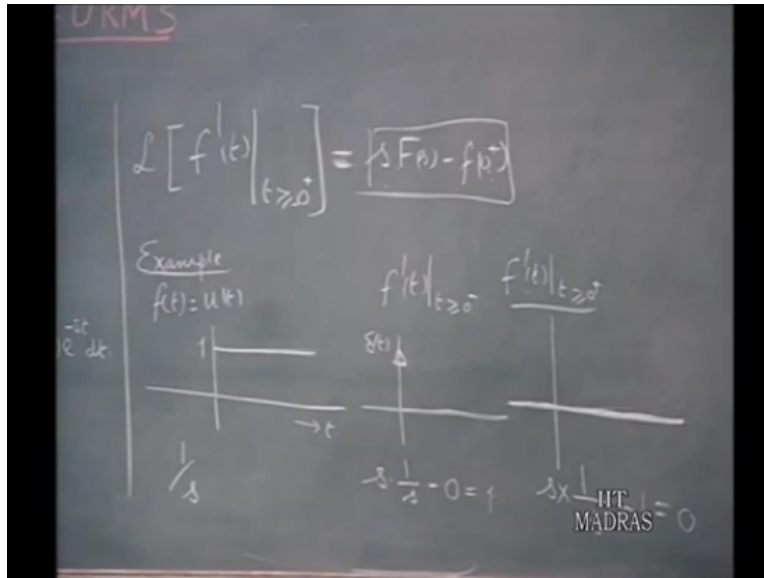 ORMS
L[f'(t)|t≥0⁺] = sF(s) - f(0⁺)
Example
f(t) = u(t)
f'(t)|t≥0⁻
f'(t)|t≥0⁺
)e⁻ˢᵗ dt.
1
δ(t)
→t
1/s
s·1/s - 0 = 1
s×1/ -1 = 0
IIT
MADRAS